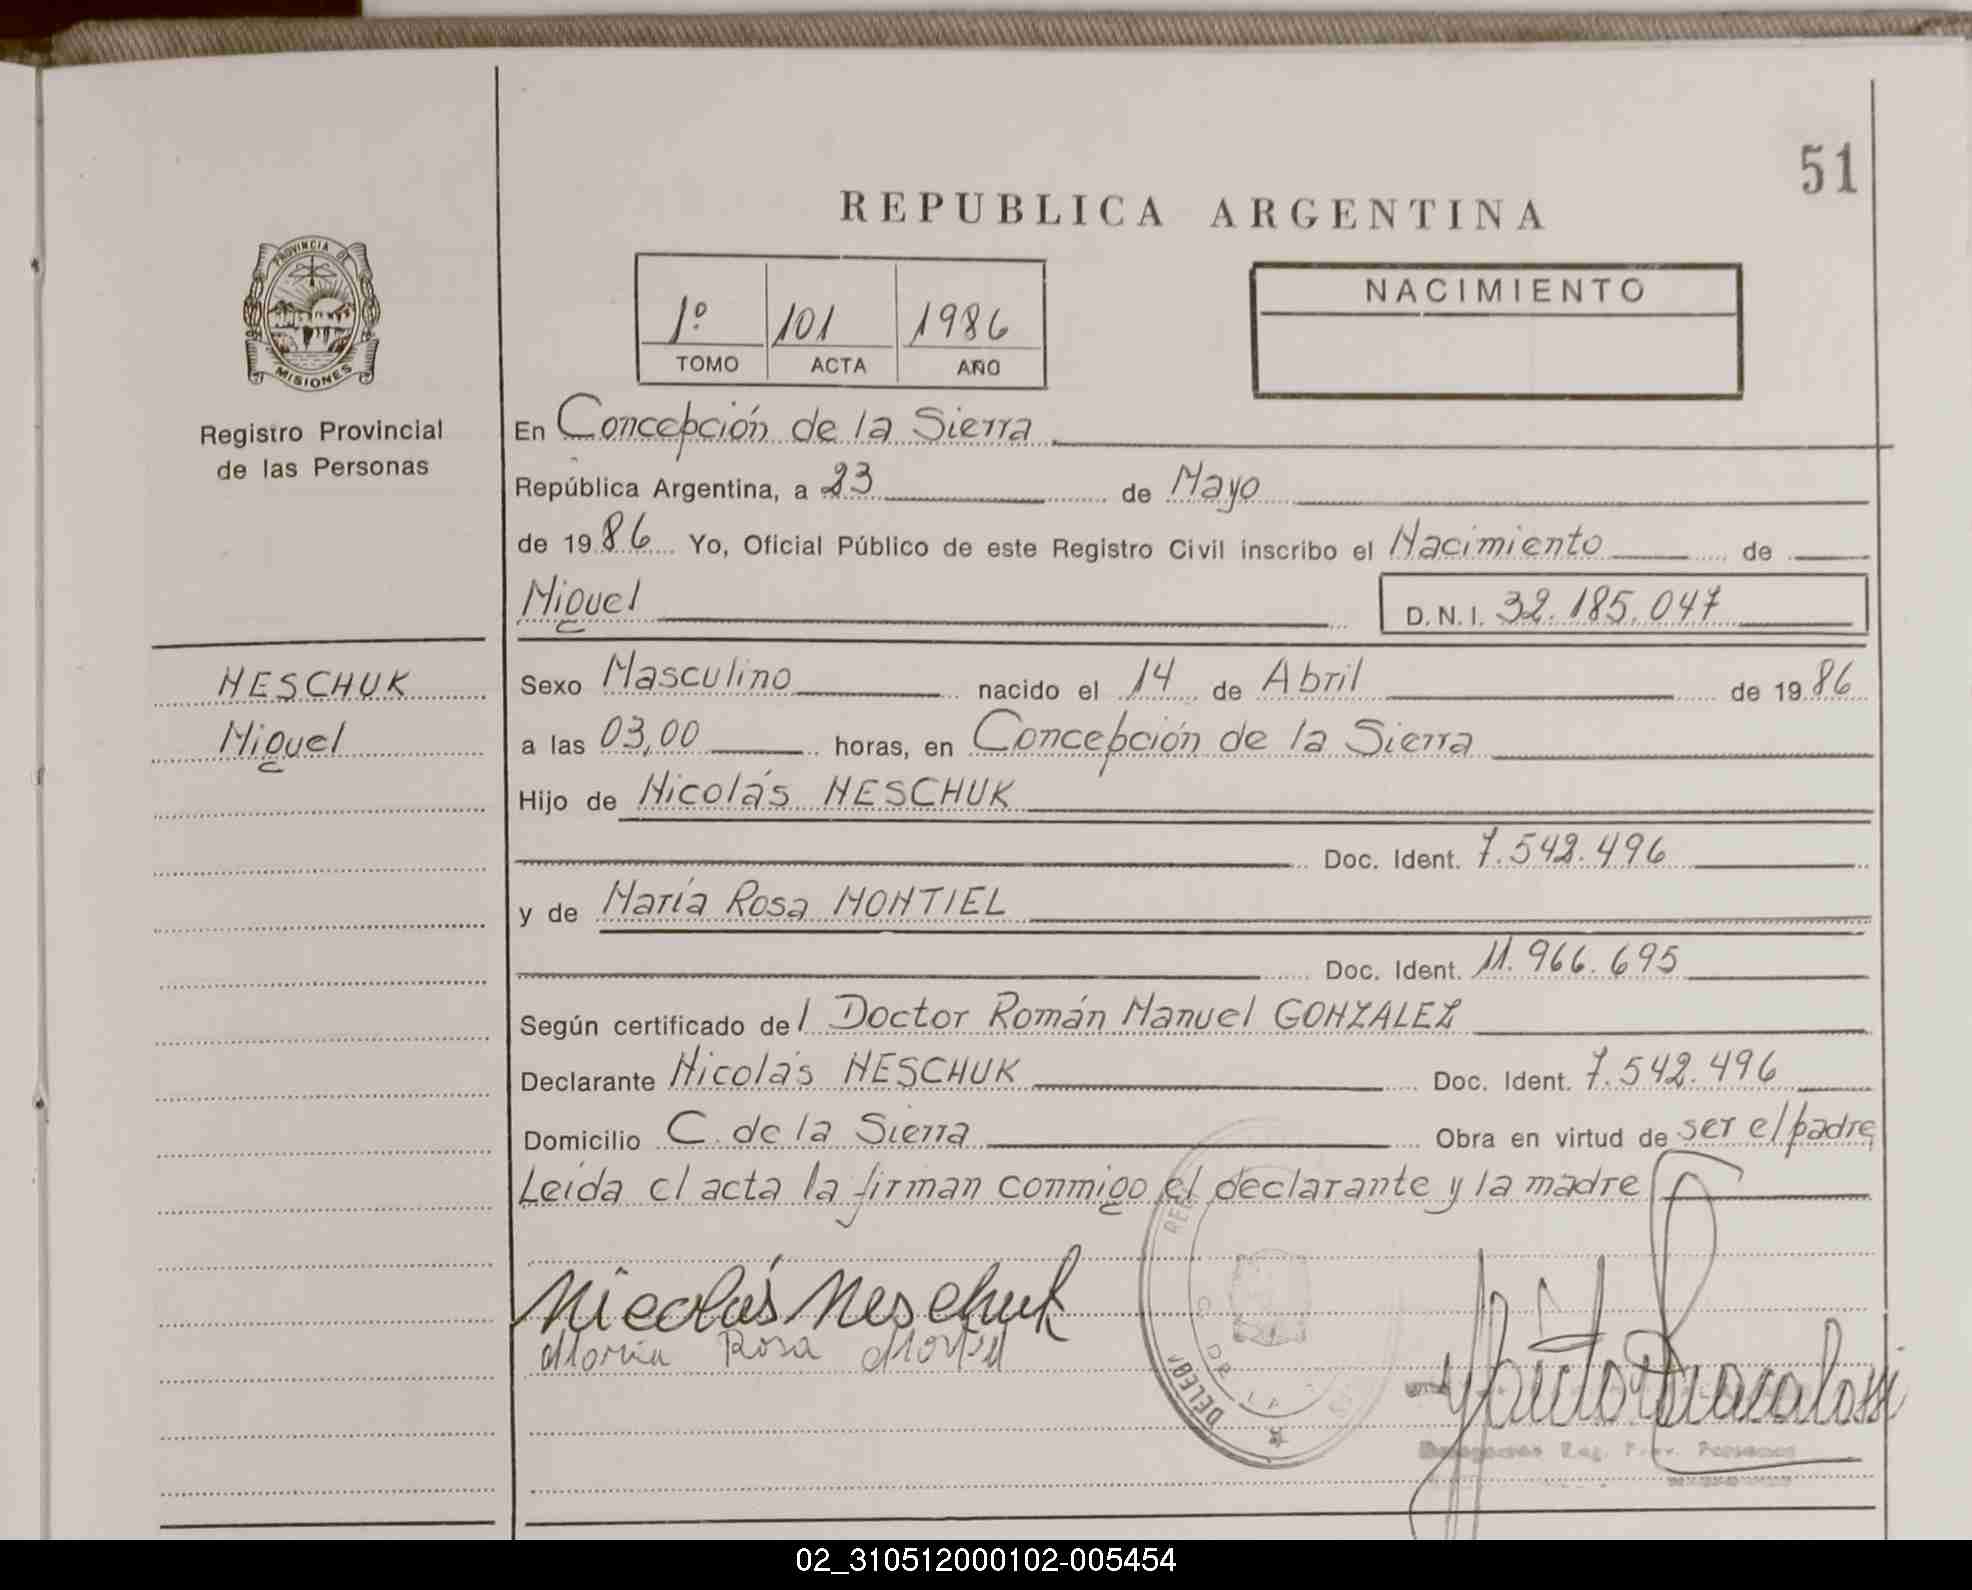 51
REPUBLICA ARGENTINA
PROVINCIA DE
MISIONES
Registro Provincial
de las Personas
1º 101 1986
TOMO ACTA AÑO
NACIMIENTO
En Concepción de la Sierra
República Argentina, a 23 de Mayo
de 1986 Yo, Oficial Público de este Registro Civil inscribo el Nacimiento de
Miguel D.N.I. 32.185.047
NESCHUK
Miguel
Sexo Masculino nacido el 14 de Abril de 1986
a las 03,00 horas, en Concepción de la Sierra
Hijo de Nicolás NESCHUK
Doc. Ident. 7.542.496
y de María Rosa MONTIEL
Doc. Ident. 11.966.695
Según certificado del Doctor Román Manuel GONZALEZ
Declarante Nicolás NESCHUK Doc. Ident. 7.542.496
Domicilio C. de la Sierra Obra en virtud de ser el padre
Leída el acta la firman conmigo el declarante y la madre
Nicolás Neschuk
María Rosa Montiel
DE LA
Reg. Prov. Personas
02_310512000102-005454